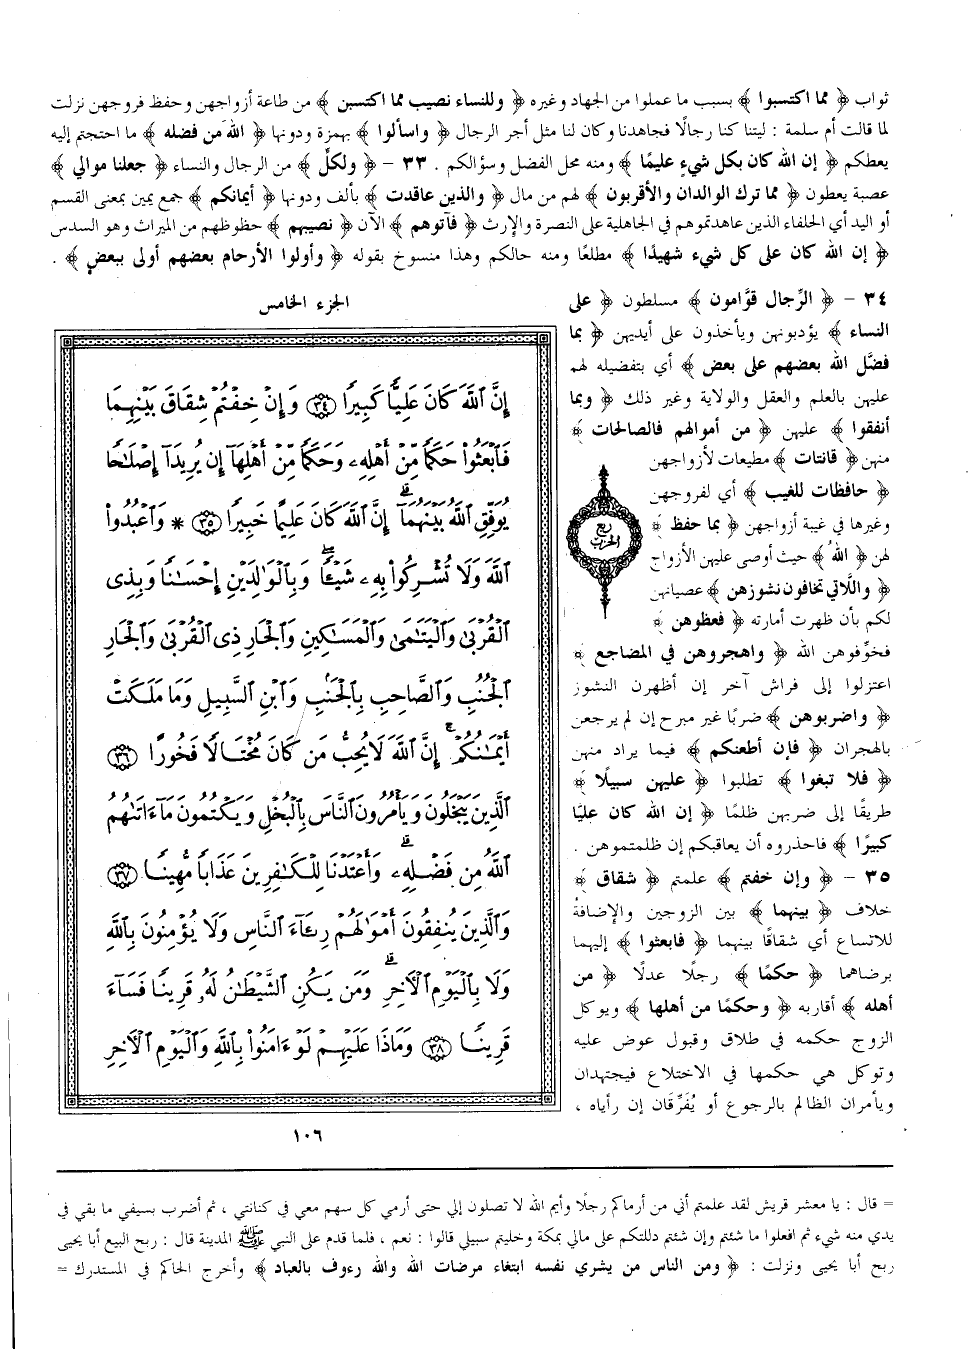 ثواب ﴿ مما اكتسبوا ﴾ بسبب ما عملوا من الجهاد وغيره ﴿ وللنساء نصيب مما اكتسبن ﴾ من طاعة أزواجهن وحفظ فروجهن نزلت
لما قالت أم سلمة : ليتنا كنا رجالًا فجاهدنا وكان لنا مثل أجر الرجال ﴿ واسألوا ﴾ بهمزة ودونها ﴿ اللهَ من فضله ﴾ ما احتجتم إليه
يعطكم ﴿ إن الله كان بكل شيءٍ عليمًا ﴾ ومنه محل الفضل وسؤالكم . ٣٣ - ﴿ ولكلٍّ ﴾ من الرجال والنساء ﴿ جعلنا موالي ﴾
عصبة يعطون ﴿ مما ترك الوالدان والأقربون ﴾ لهم من مال ﴿ والذين عاقدت ﴾ بألف ودونها ﴿ أيمانكم ﴾ جمع يمين بمعنى القسم
أو اليد أي الحلفاء الذين عاهدتموهم في الجاهلية على النصرة والإرث ﴿ فآتوهم ﴾ الآن ﴿ نصيبهم ﴾ حظوظهم من الميراث وهو السدس
﴿ إن الله كان على كل شيء شهيدًا ﴾ مطلعًا ومنه حالكم وهذا منسوخ بقوله ﴿ وأولوا الأرحام بعضهم أولى ببعضٍ ﴾ .
٣٤ - ﴿ الرِّجال قوَّامون ﴾ مسلطون ﴿ على
النساء ﴾ يؤدبونهن ويأخذون على أيديهن ﴿ بما
فضَّل الله بعضهم على بعض ﴾ أي بتفضيله لهم
عليهن بالعلم والعقل والولاية وغير ذلك ﴿ وبما
أنفقوا ﴾ عليهن ﴿ من أموالهم فالصالحات ﴾
منهن ﴿ قانتات ﴾ مطيعات لأزواجهن
﴿ حافظات للغيب ﴾ أي لفروجهن
وغيرها في غيبة أزواجهن ﴿ بما حفظ ﴾
لهن ﴿ اللهُ ﴾ حيث أوصى عليهن الأزواج
﴿ واللَّاتي تخافون نشوزهن ﴾ عصيانهن
لكم بأن ظهرت أمارته ﴿ فعظوهن ﴾
فخوِّفوهن الله ﴿ واهجروهن في المضاجع ﴾
اعتزلوا إلى فراش آخر إن أظهرن النشوز
﴿ واضربوهن ﴾ ضربًا غير مبرح إن لم يرجعن
بالهجران ﴿ فإن أطعنكم ﴾ فيما يراد منهن
﴿ فلا تبغوا ﴾ تطلبوا ﴿ عليهن سبيلًا ﴾
طريقًا إلى ضربهن ظلمًا ﴿ إن الله كان عليًا
كبيرًا ﴾ فاحذروه أن يعاقبكم إن ظلمتموهن .
٣٥ - ﴿ وإن خفتم ﴾ علمتم ﴿ شقاق ﴾
خلاف ﴿ بينهما ﴾ بين الزوجين والإضافةُ
للاتساع أي شقاقًا بينهما ﴿ فابعثوا ﴾ إليهما
برضاهما ﴿ حكمًا ﴾ رجلًا عدلًا ﴿ من
أهله ﴾ أقاربه ﴿ وحكمًا من أهلها ﴾ ويوكل
الزوج حكمه في طلاق وقبول عوض عليه
وتوكل هي حكمها في الاختلاع فيجتهدان
ويأمران الظالم بالرجوع أو يُفَرِّقان إن رأياه ،
ربع
الحزب
الجزء الخامس
إِنَّ ٱللَّهَ كَانَ عَلِيًّا كَبِيرًا ﴿٣٤﴾ وَإِنْ خِفْتُمْ شِقَاقَ بَيْنِهِمَا
فَٱبْعَثُوا۟ حَكَمًا مِّنْ أَهْلِهِۦ وَحَكَمًا مِّنْ أَهْلِهَآ إِن يُرِيدَآ إِصْلَٰحًا
يُوَفِّقِ ٱللَّهُ بَيْنَهُمَآ ۗ إِنَّ ٱللَّهَ كَانَ عَلِيمًا خَبِيرًا ﴿٣٥﴾ * وَٱعْبُدُوا۟
ٱللَّهَ وَلَا تُشْرِكُوا۟ بِهِۦ شَيْـًٔا ۖ وَبِٱلْوَٰلِدَيْنِ إِحْسَٰنًا وَبِذِى
ٱلْقُرْبَىٰ وَٱلْيَتَٰمَىٰ وَٱلْمَسَٰكِينِ وَٱلْجَارِ ذِى ٱلْقُرْبَىٰ وَٱلْجَارِ
ٱلْجُنُبِ وَٱلصَّاحِبِ بِٱلْجَنۢبِ وَٱبْنِ ٱلسَّبِيلِ وَمَا مَلَكَتْ
أَيْمَٰنُكُمْ ۗ إِنَّ ٱللَّهَ لَا يُحِبُّ مَن كَانَ مُخْتَالًا فَخُورًا ﴿٣٦﴾
ٱلَّذِينَ يَبْخَلُونَ وَيَأْمُرُونَ ٱلنَّاسَ بِٱلْبُخْلِ وَيَكْتُمُونَ مَآ ءَاتَىٰهُمُ
ٱللَّهُ مِن فَضْلِهِۦ ۗ وَأَعْتَدْنَا لِلْكَٰفِرِينَ عَذَابًا مُّهِينًا ﴿٣٧﴾
وَٱلَّذِينَ يُنفِقُونَ أَمْوَٰلَهُمْ رِئَآءَ ٱلنَّاسِ وَلَا يُؤْمِنُونَ بِٱللَّهِ
وَلَا بِٱلْيَوْمِ ٱلْءَاخِرِ ۗ وَمَن يَكُنِ ٱلشَّيْطَٰنُ لَهُۥ قَرِينًا فَسَآءَ
قَرِينًا ﴿٣٨﴾ وَمَاذَا عَلَيْهِمْ لَوْ ءَامَنُوا۟ بِٱللَّهِ وَٱلْيَوْمِ ٱلْءَاخِرِ
١٠٦
= قال : يا معشر قريش لقد علمتم أني من أرماكم رجلًا وأيم الله لا تصلون إلي حتى أرمي كل سهم معي في كنانتي ، ثم أضرب بسيفي ما بقي في
يدي منه شيء ثم افعلوا ما شئتم وإن شئتم دللتكم على مالي بمكة وخليتم سبيلي قالوا : نعم ، فلما قدم على النبي ﷺ المدينة قال : ربح البيع أبا يحيى
ربح أبا يحيى ونزلت : ﴿ ومن الناس من يشري نفسه ابتغاء مرضات الله والله رءوف بالعباد ﴾ وأخرج الحاكم في المستدرك =